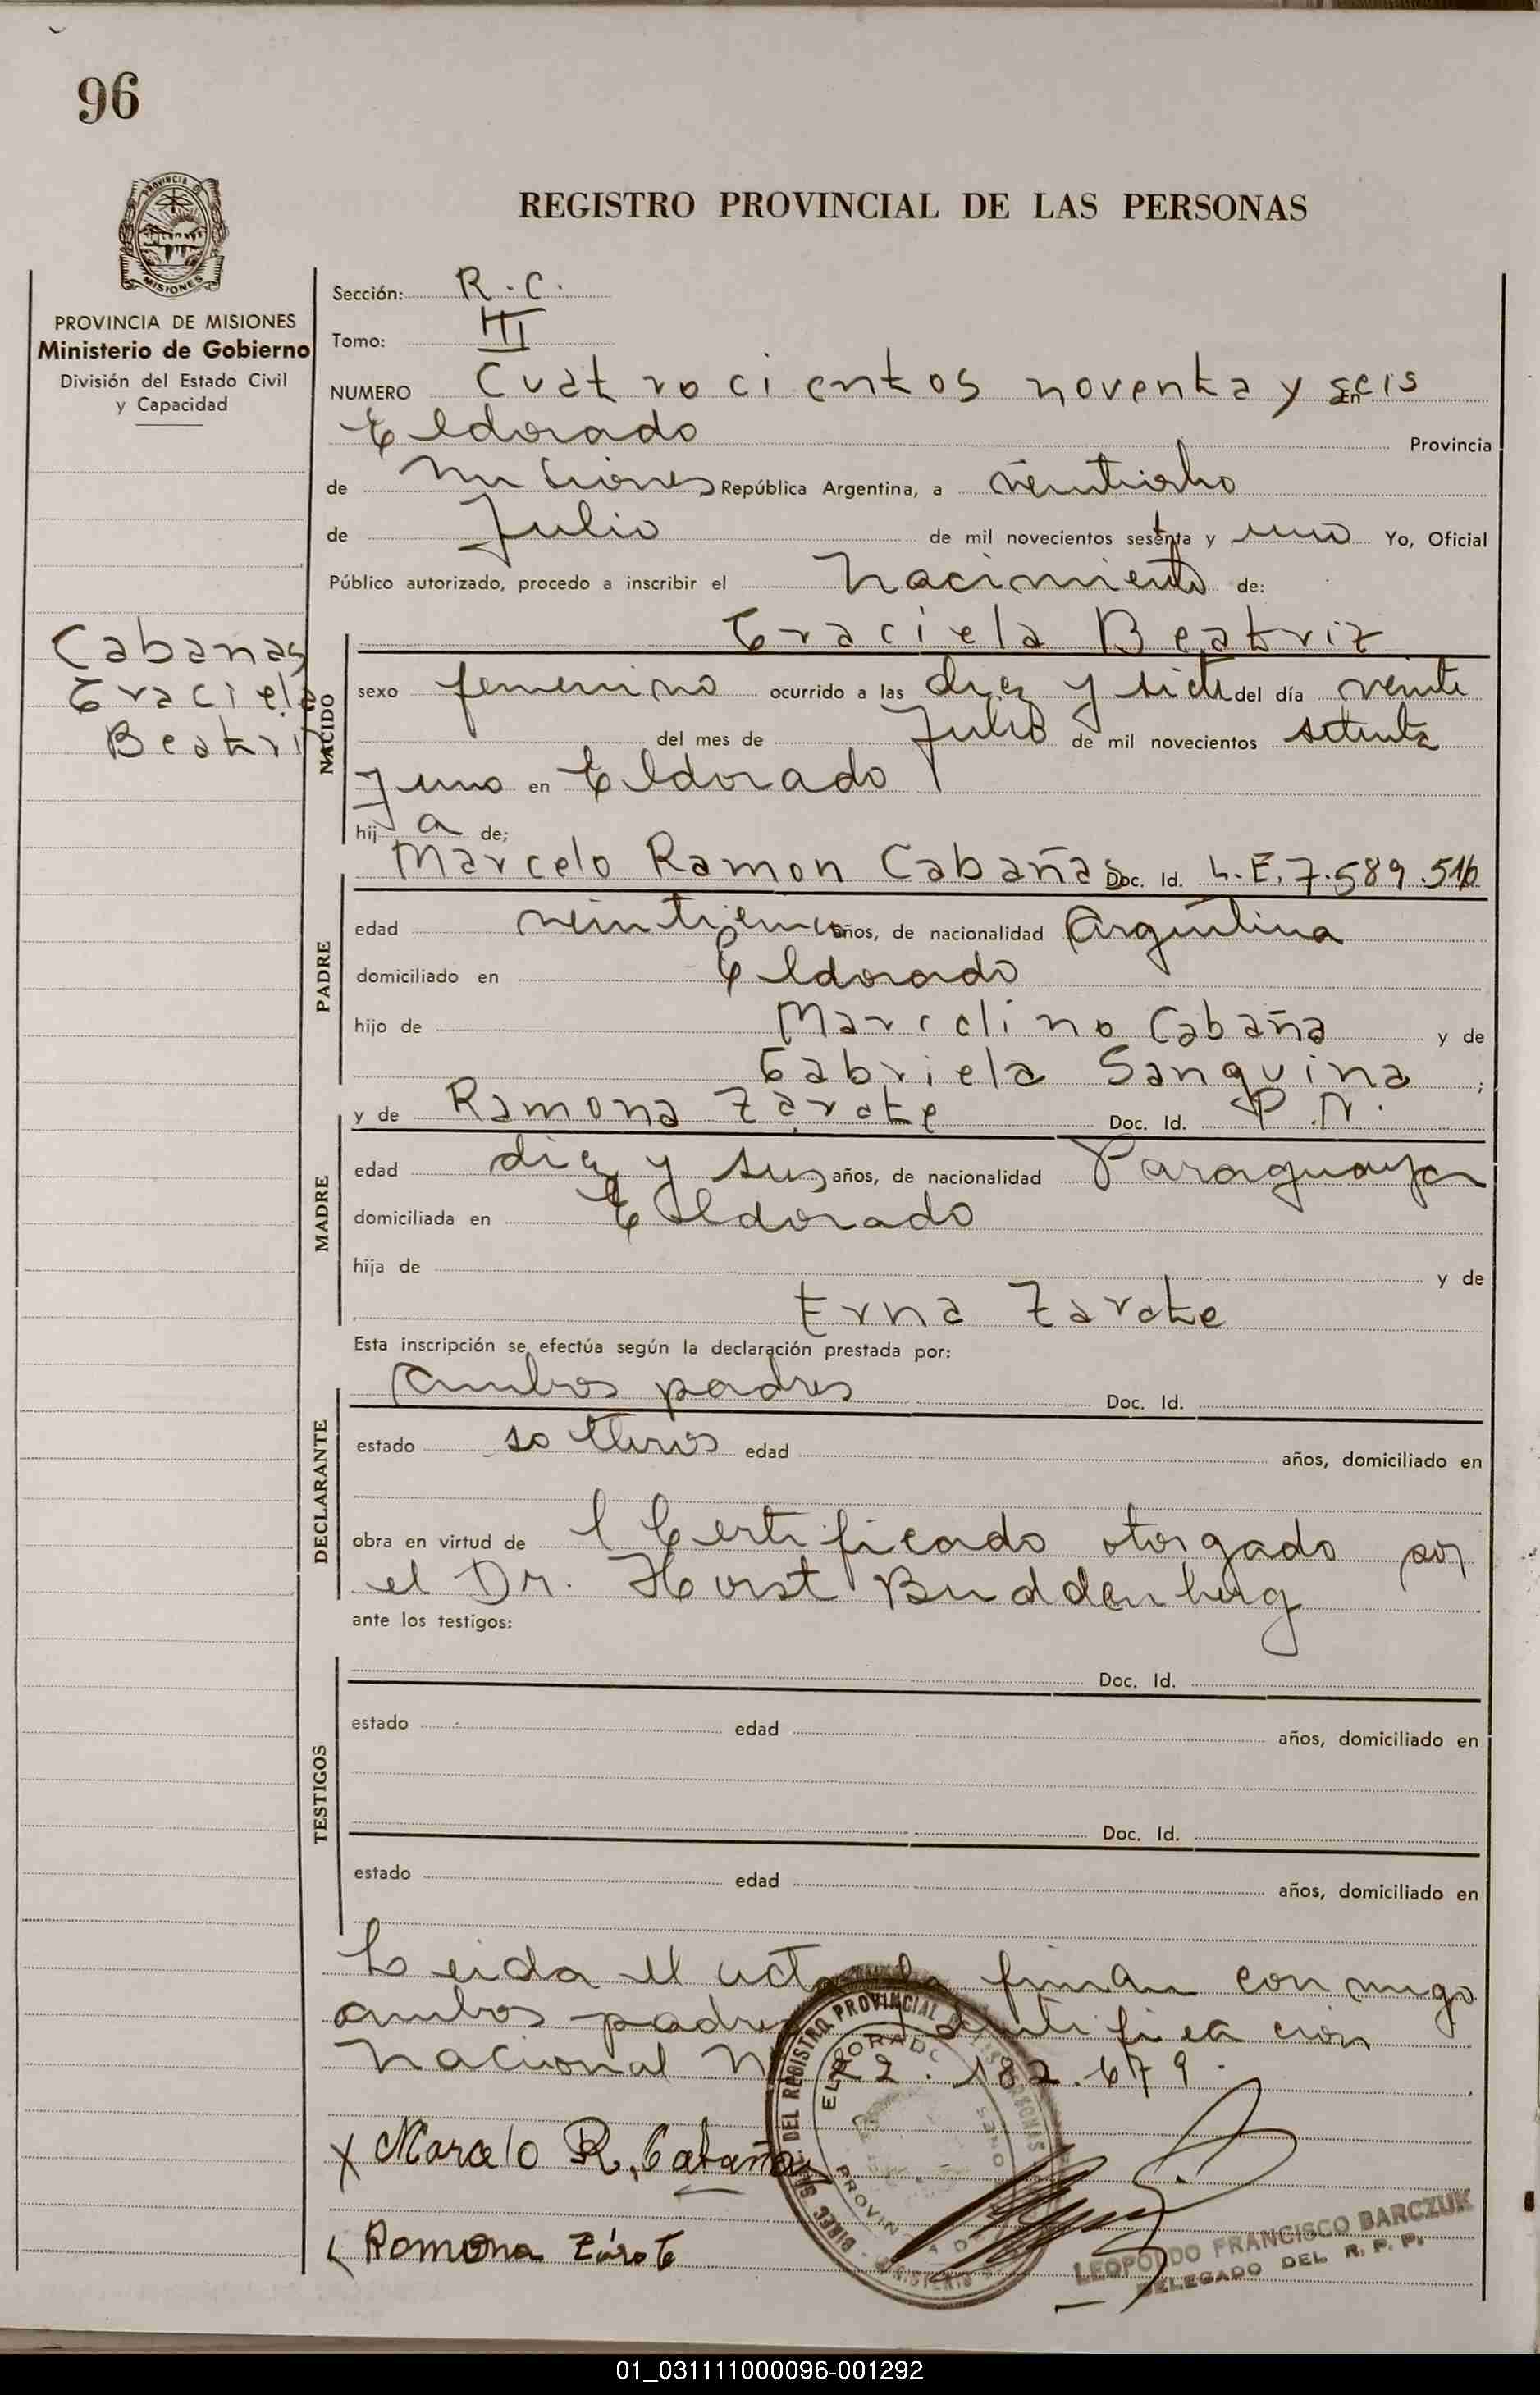 96
PROVINCIA DE
MISIONES
PROVINCIA DE MISIONES
Ministerio de Gobierno
División del Estado Civil
y Capacidad
Cabanas
Graciela
Beatri
REGISTRO PROVINCIAL DE LAS PERSONAS
Sección: R.C.
Tomo: III
NUMERO Cuatrocientos noventa y seis En
Eldorado Provincia
de Misiones República Argentina, a veintiocho
de Julio de mil novecientos sesenta y uno Yo, Oficial
Público autorizado, procedo a inscribir el Nacimiento de:
NACIDO
Graciela Beatriz
sexo femenino ocurrido a las diez y siete del día veinte
del mes de Julio de mil novecientos setenta
y uno en Eldorado
hij a de;
PADRE
Marcelo Ramon Cabañas Doc. Id. L.E. 7.589.516
edad años, de nacionalidad Argentina
domiciliado en Eldorado
hijo de Marcelino Cabaña y de
Gabriela Sanquina ;
MADRE
y de Ramona Zarate Doc. Id. P.N.
edad diez y seis años, de nacionalidad Paraguaya
domiciliada en Eldorado
hija de y de
Erna Zarate
Esta inscripción se efectúa según la declaración prestada por:
DECLARANTE
Ambos padres Doc. Id.
estado solteros edad años, domiciliado en
obra en virtud de l Certificado otorgado por
el Dr. Horst Buddenberg
ante los testigos:
TESTIGOS
Doc. Id.
estado edad años, domiciliado en
Doc. Id.
estado edad años, domiciliado en
Leida el acta la firman conmigo
ambos padres Identificación
Nacional Nº 22.182.679.
x Marcelo R. Cabañas
Ramona Zárate
DEL REGISTRO PROVINCIAL DE LAS PERSONAS
ELDORADO
PROVINCIA DE MISIONES
LEOPOLDO FRANCISCO BARCZUK
DELEGADO DEL R. P. P.
01_031111000096-001292